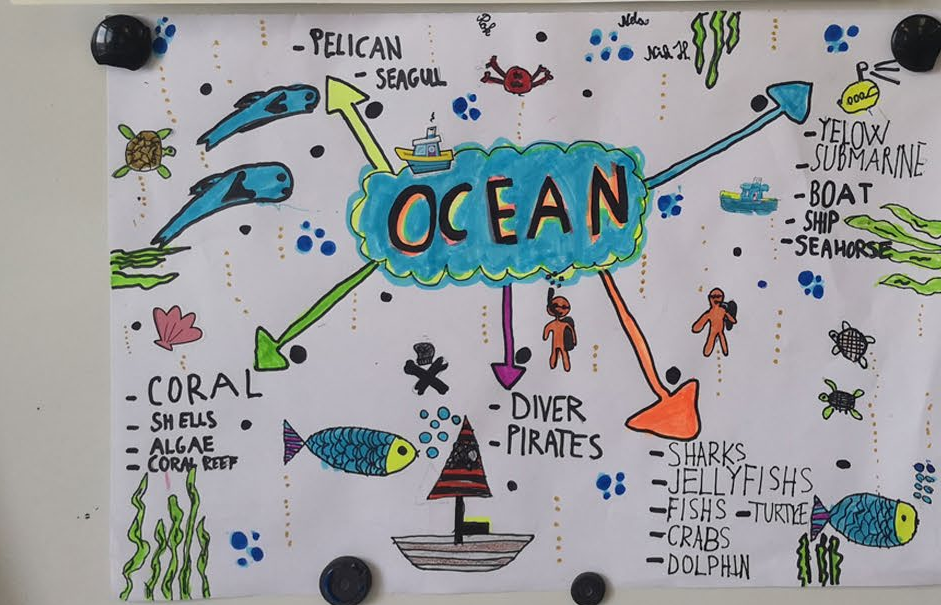 - PELICAN
- SEAGULL
Nela
OCEAN
- YELOW
SUBMARINE
- BOAT
- SHIP
- SEAHORSE
- CORAL
- SHELLS
- ALGAE
- CORAL REEF
- DIVER
- PIRATES
- SHARKS
- JELLYFISHS
- FISHS - TURTLE
- CRABS
- DOLPHIN